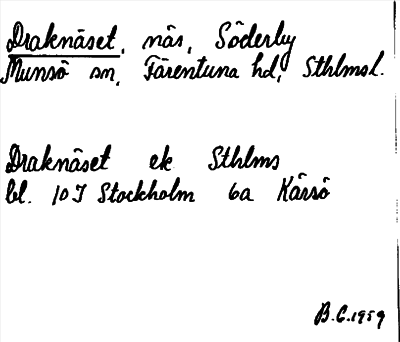 Draknäset, näs, Söderby
Munsö sn, Färentuna hd, Sthlmsl.
Draknäset ek Sthlms
bl. 10I Stockholm 6a Kärsö
B.C.1959